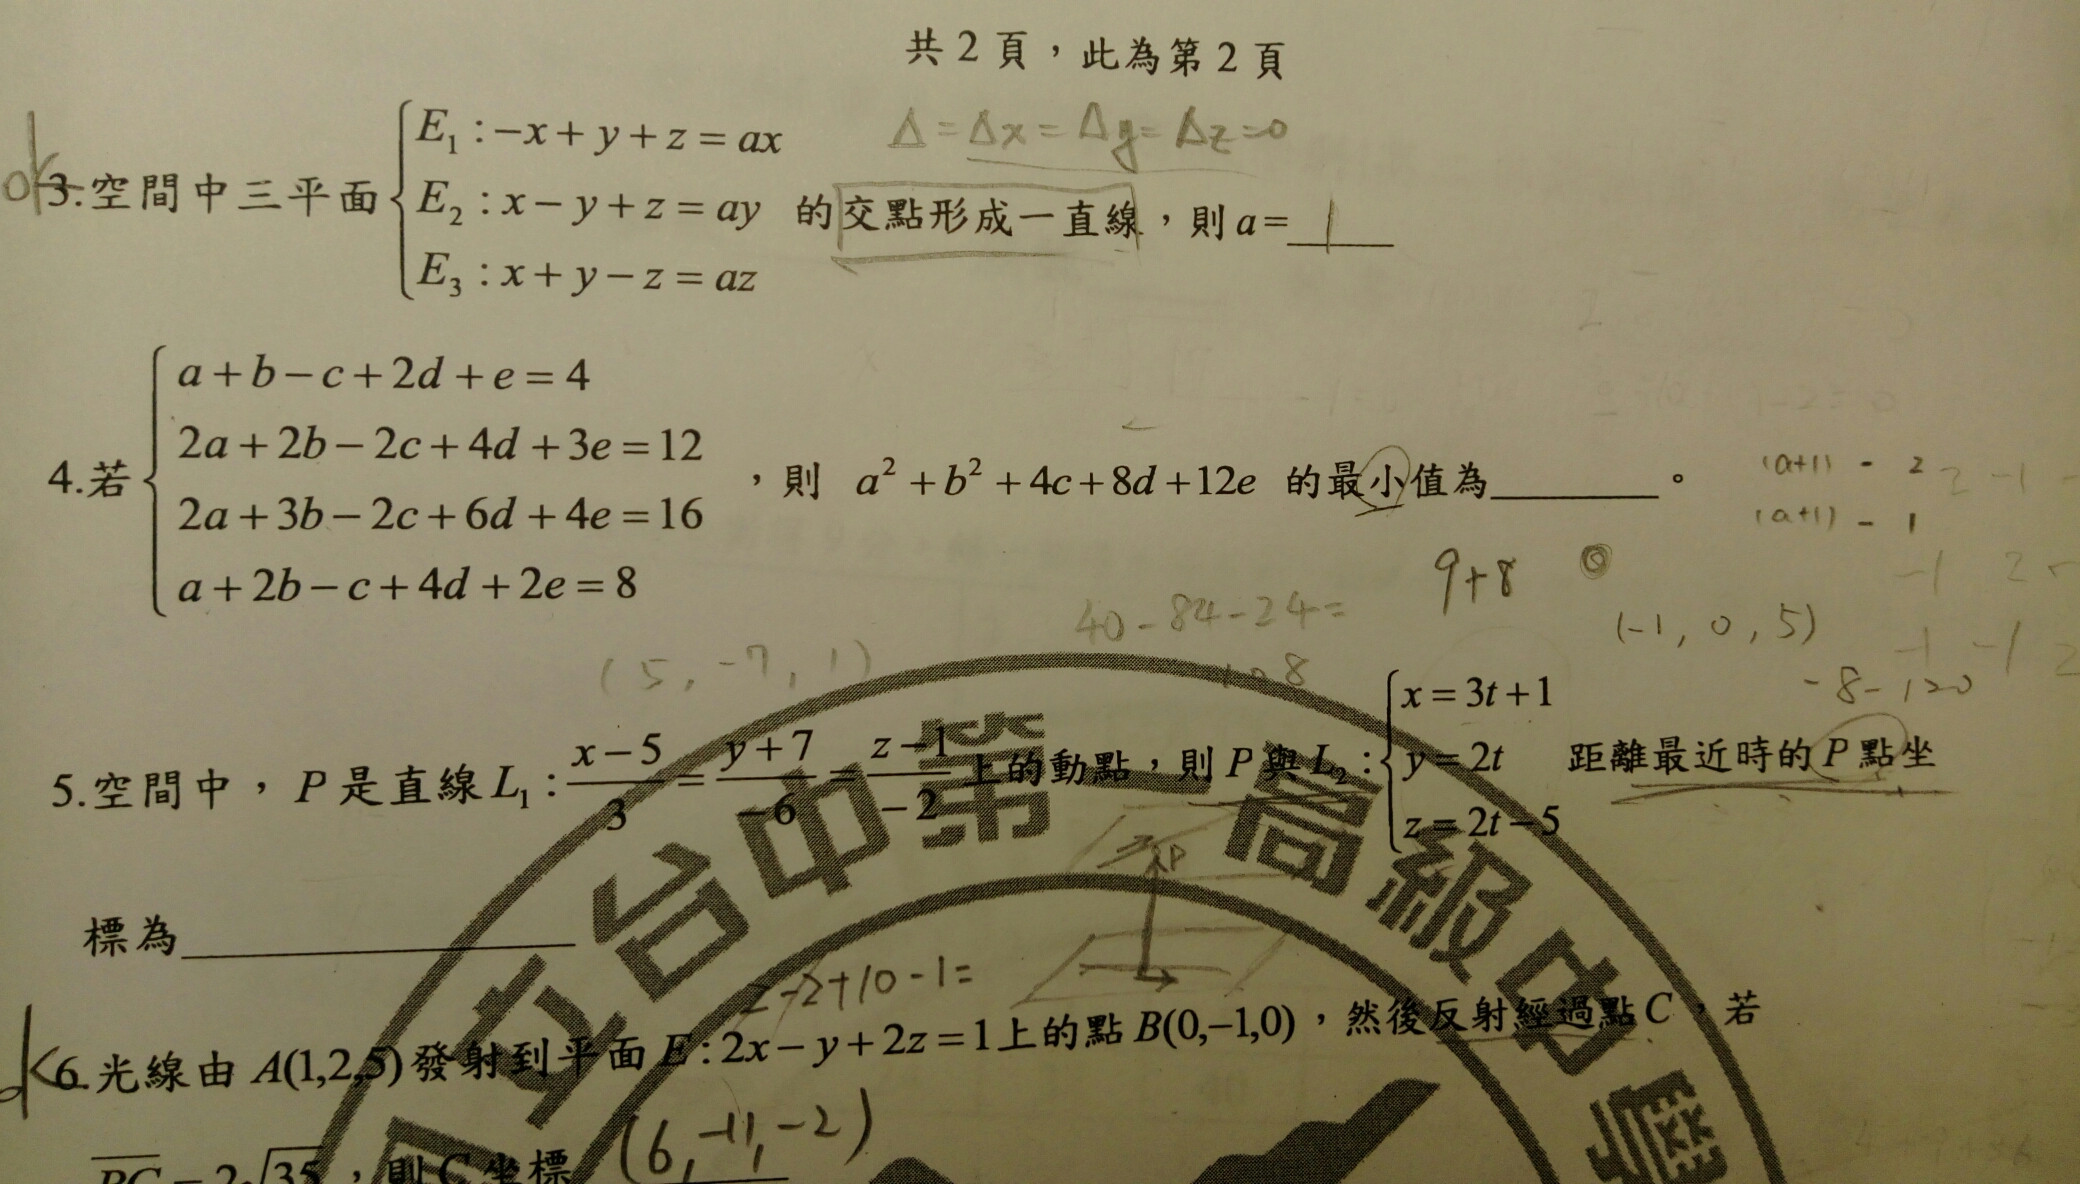 共2頁，此為第2頁
Δ=Δx=Δy=Δz=0
ok
3.空間中三平面 { E₁:−x+y+z=ax
E₂:x−y+z=ay 的交點形成一直線，則a= 1
E₃:x+y−z=az
4.若 { a+b−c+2d+e=4
2a+2b−2c+4d+3e=12
2a+3b−2c+6d+4e=16
a+2b−c+4d+2e=8
，則 a²+b²+4c+8d+12e 的最小值為________。
(a+1) - 2
(a+1) - 1
9+8
40-84-24=
108
(-1, 0, 5)
-8-120
(5, -7, 1)
5.空間中，P是直線L₁: (x−5)/3 = (y+7)/−6 = (z−1)/−2 上的動點，則P與L₂: { x=3t+1
y=2t
z=2t−5
距離最近時的P點坐
標為________
P
2-2+10-1=
ok
6.光線由A(1,2,5)發射到平面E:2x−y+2z=1上的點B(0,−1,0)，然後反射經過點C，若
BC=2√35，則C坐標 (6,-11,-2)
國立台中第一高級中學